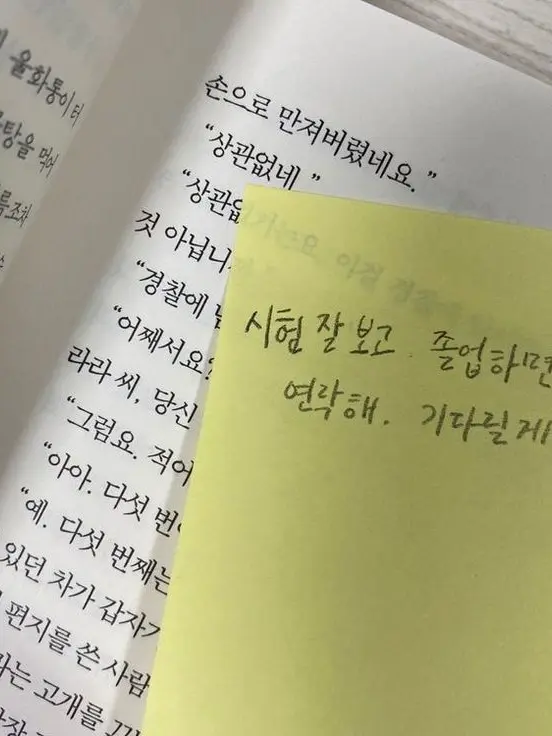 울화통이 터
탕을 먹어
손으로 만져버렸네요.”
“상관없네.”
“상관없
것 아닙니
“경찰에
“어째서요?
라라 씨, 당신
“그럼요. 적어
“아아. 다섯 번
“예. 다섯 번째는
있던 차가 갑자기
편지를 쓴 사람
는 고개를
시험 잘 보고. 졸업하면
연락해. 기다릴게